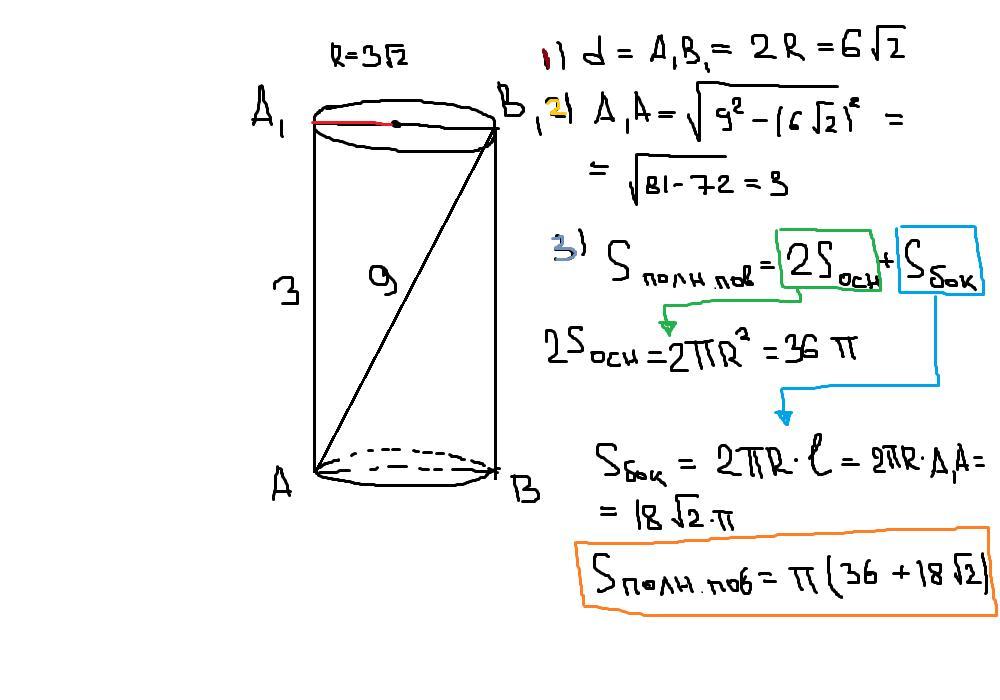 R=3√2
1) d = A₁B₁ = 2R = 6√2
A₁
B₁
2) A₁A = √(9² - (6√2)² =
= √81-72 = 3
3
9
3) Sполн.пов = 2Sосн + Sбок
2Sосн = 2πR² = 36 π
A
B
Sбок = 2πR · l = 2πR · A₁A =
= 18√2·π
Sполн.пов = π(36 + 18√2)